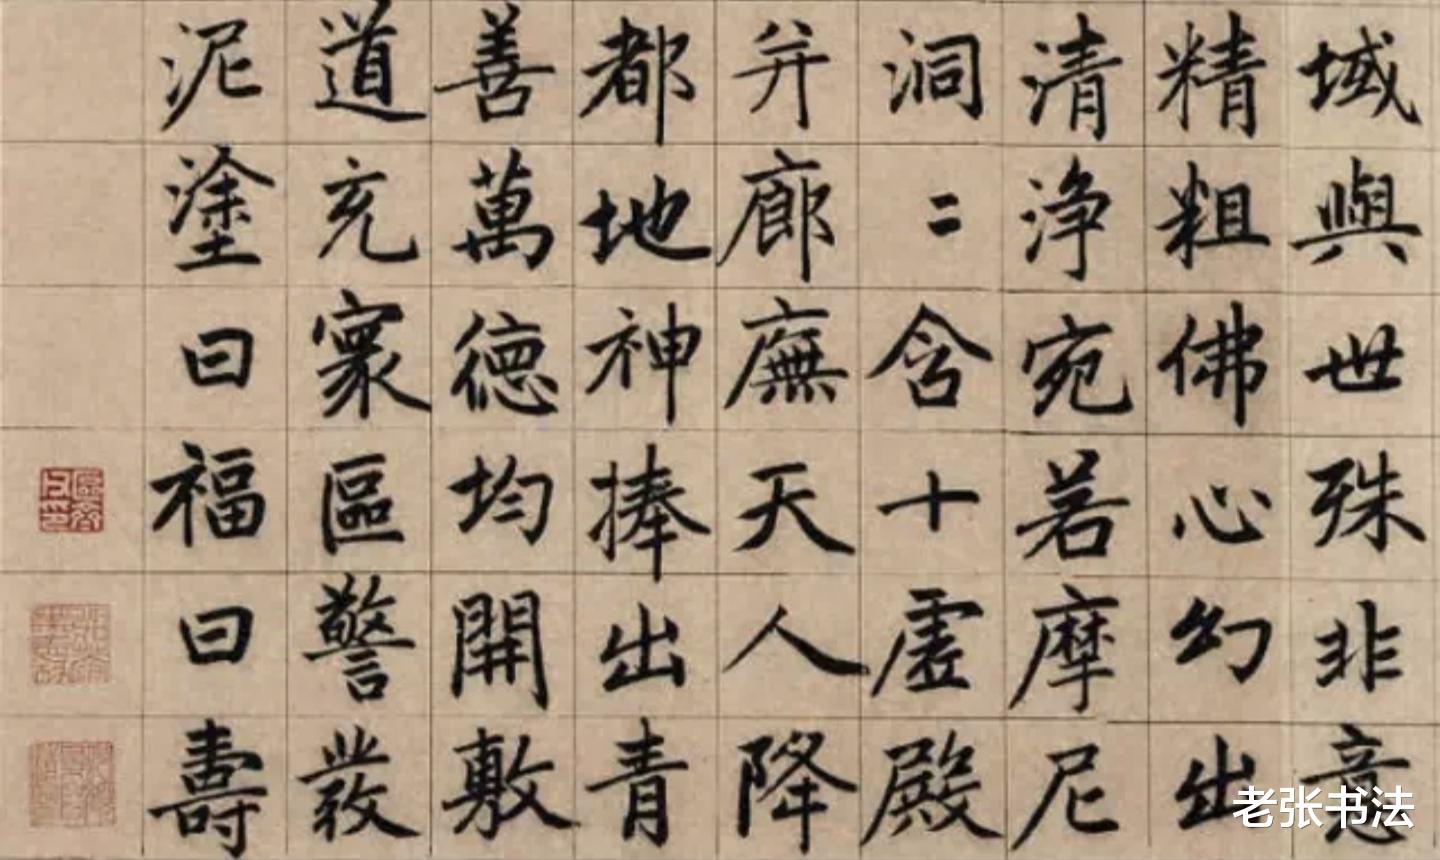 域與世殊非意
精粗佛心幻出
清浄宛若摩尼
洞〻含十虛殿
并廊廡天人降
都地神捧出青
善萬德均開敷
道充寰區警發
泥塗曰福曰壽
老张书法